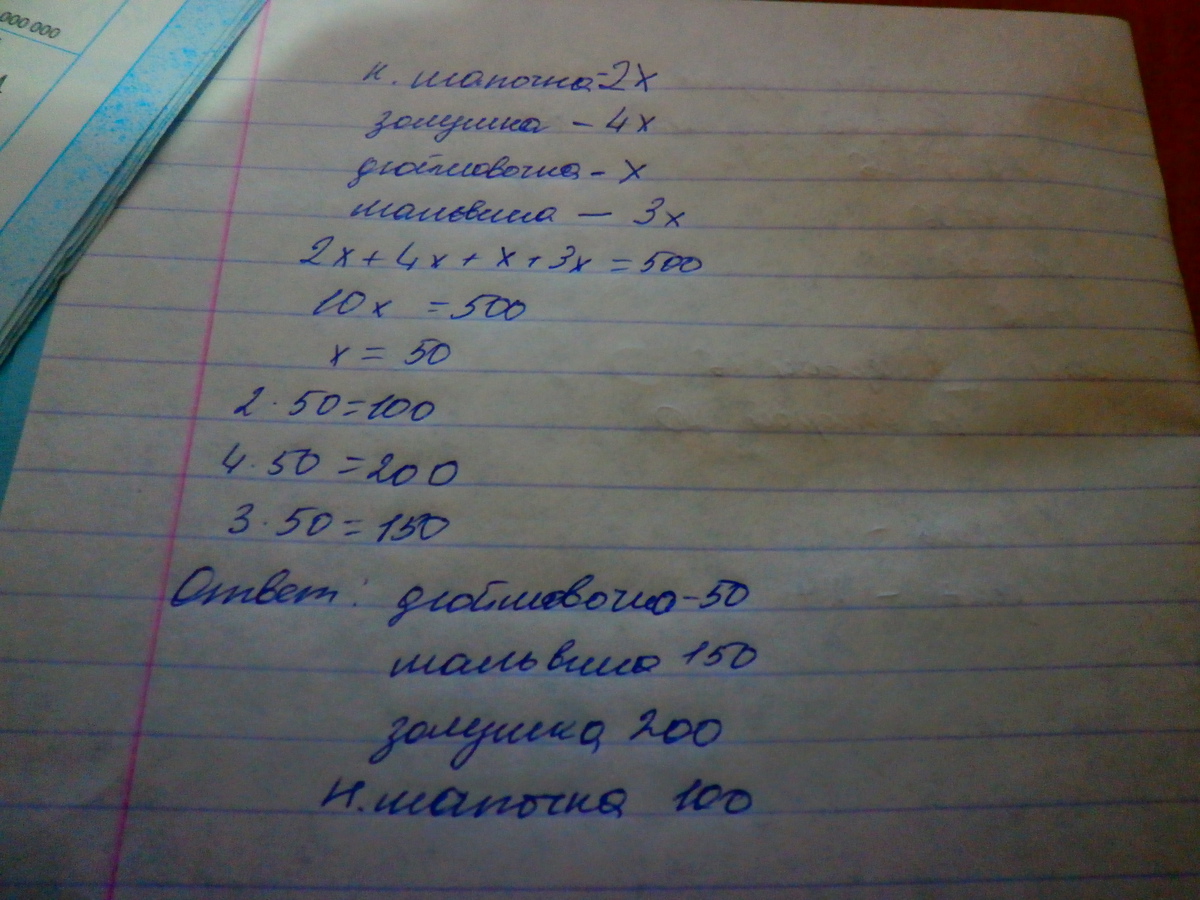 000 000
к. шапочка-2x
золушка - 4x
дюймовочка - x
мальвина — 3x
2x + 4x + x + 3x = 500
10x = 500
x = 50
2 · 50 = 100
4 · 50 = 200
3 · 50 = 150
Ответ: дюймовочка - 50
мальвина 150
золушка 200
К. шапочка 100